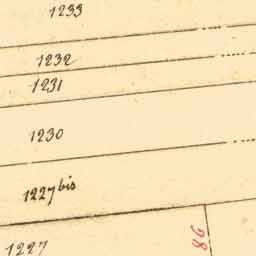 1233
1232
1231
1230
1227 bis
1227
98